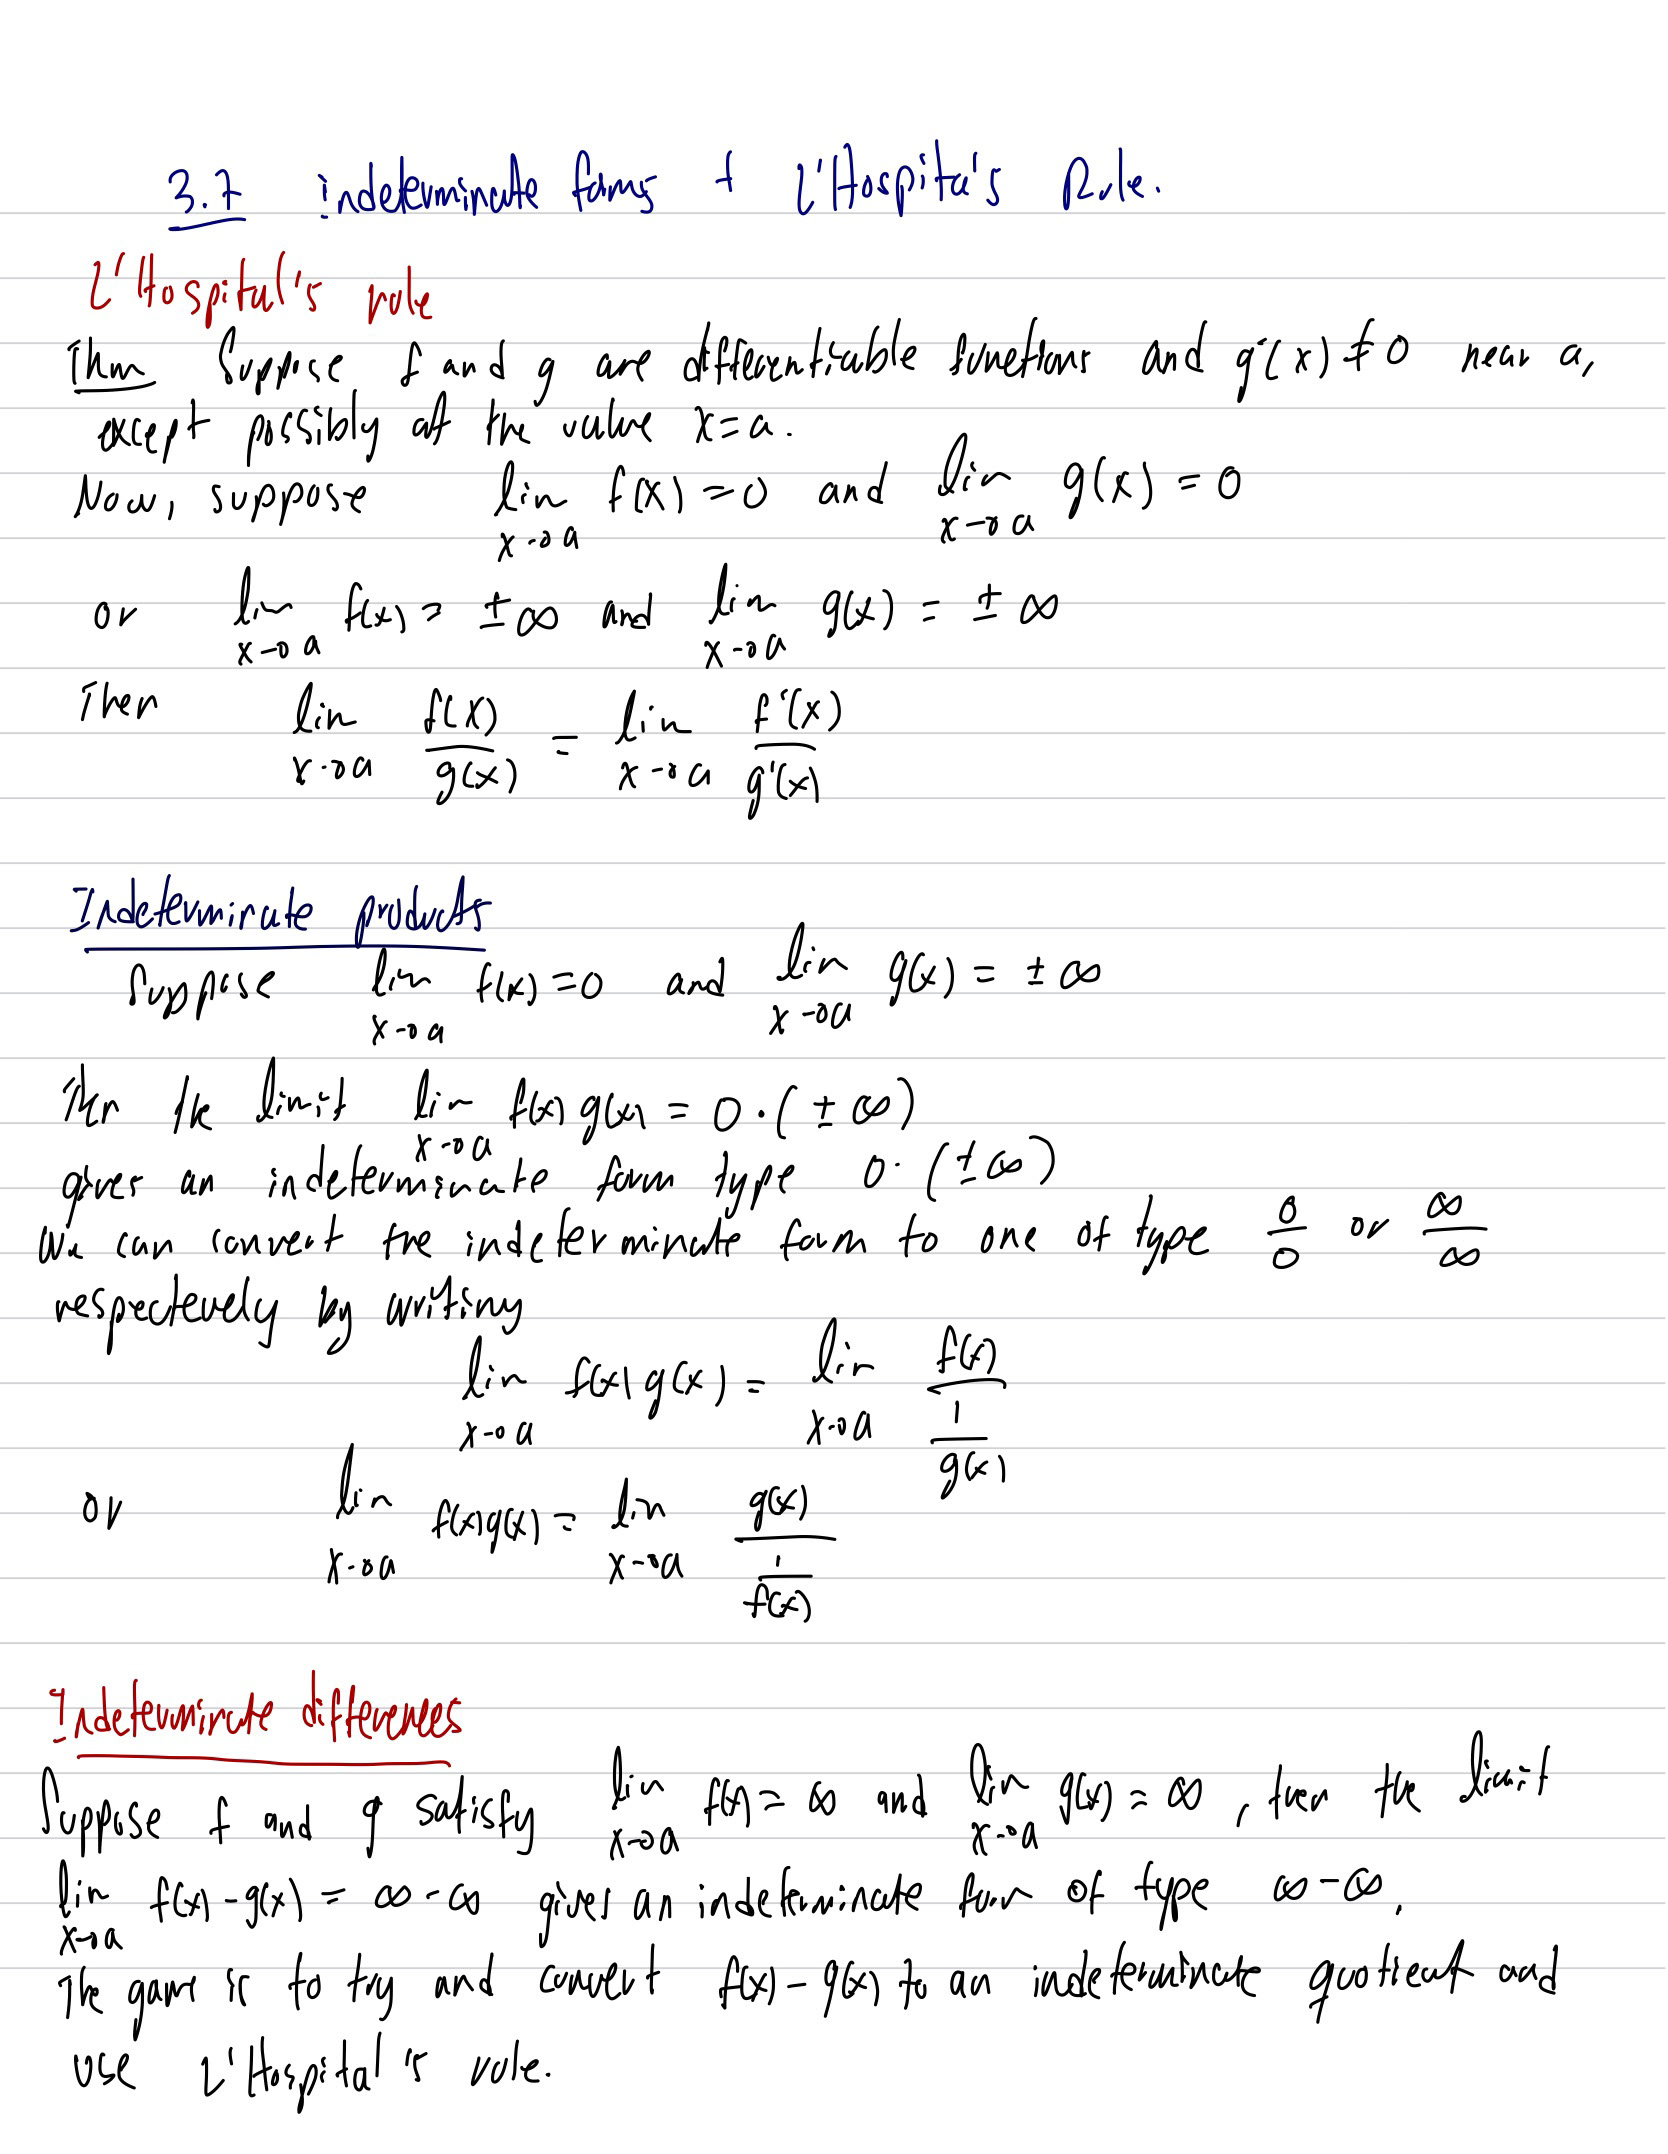 3.7 indeterminate forms + L'Hospita's Rule.
L'Hospital's rule
Thm Suppose f and g are differentiable functions and g'(x) ≠ 0 near a,
except possibly at the value x=a.
Now, suppose lim x→a f(x) = 0 and lim x→a g(x) = 0
or lim x→a f(x) = ±∞ and lim x→a g(x) = ±∞
Then lim x→a f(x)/g(x) = lim x→a f'(x)/g'(x)
Indeterminate products
Suppose lim x→a f(x) = 0 and lim x→a g(x) = ±∞
Then the limit lim x→a f(x) g(x) = 0·(±∞)
gives an indeterminate form type 0·(±∞)
We can convert the indeterminate form to one of type 0/0 or ∞/∞
respectevely by writing
lim x→a f(x) g(x) = lim x→a f(x)/(1/g(x))
or lim x→a f(x)g(x) = lim x→a g(x)/(1/f(x))
Indeterminate differences
Suppose f and g satisfy lim x→a f(x) = ∞ and lim x→a g(x) = ∞, then the limit
lim x→a f(x) - g(x) = ∞ - ∞ gives an indeterminate form of type ∞ - ∞.
The game is to try and convert f(x) - g(x) to an indeterminate quotient and
use L'Hospital's rule.